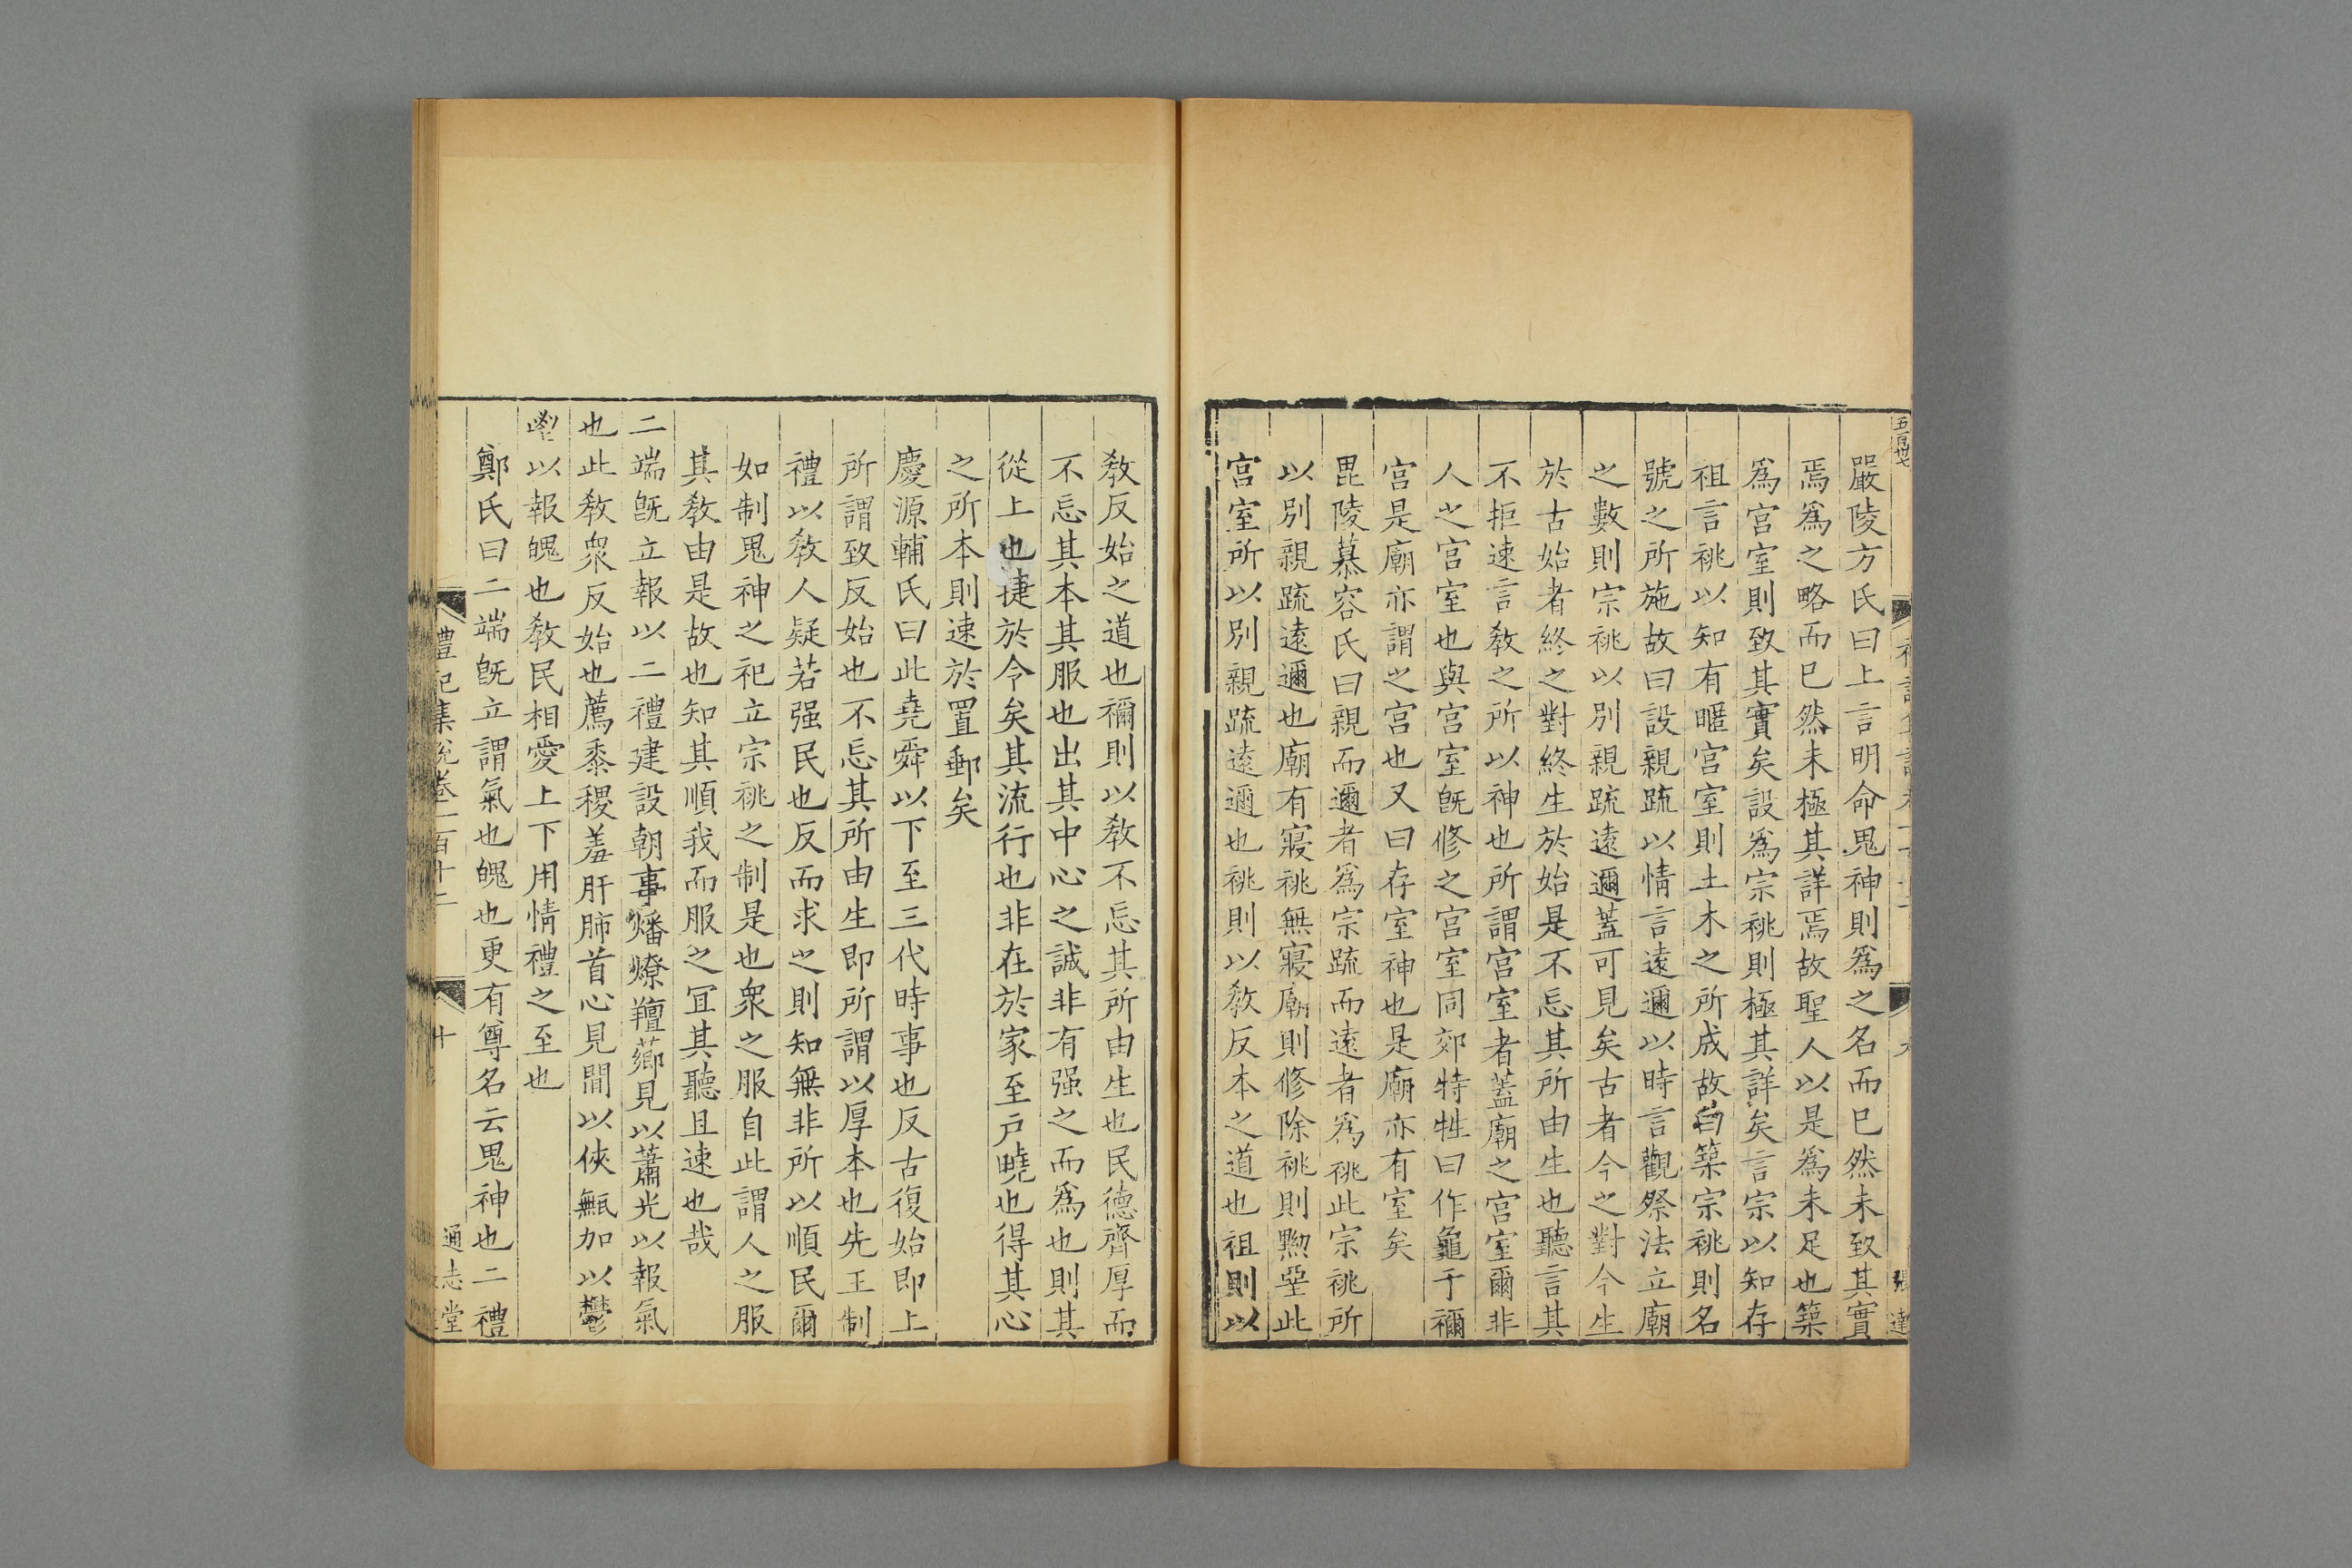 五百卅七
嚴陵方氏曰上言明命鬼神則爲之名而已然未致其實
焉爲之略而已然未極其詳焉故聖人以是爲未足也築
爲宮室則致其實矣設爲宗祧則極其詳矣言宗以知存
祖言祧以知有䁥宮室則土木之所成故曰築宗祧則名
號之所施故曰設親疏以情言遠邇以時言觀祭法立廟
之數則宗祧以別親疏遠邇蓋可見矣古者今之對今生
於古始者終之對終生於始是不忘其所由生也聽言其
不拒速言教之所以神也所謂宮室者蓋廟之宮室爾非
人之宮室也與宮室旣修之宮室同郊特牲曰作龜于禰
宮是廟亦謂之宮也又曰存室神也是廟亦有室矣
毘陵慕容氏曰親而邇者爲宗疏而遠者爲祧此宗祧所
以別親疏遠邇也廟有寢祧無寢廟則修除祧則黝堊此
宮室所以別親疏遠邇也祧則以教反本之道也祖則以
教反始之道也禰則以教不忘其所由生也民德齊厚而
不忘其本其服也出其中心之誠非有强之而爲也則其
從上也捷於令矣其流行也非在於家至戶曉也得其心
之所本則速於置郵矣
慶源輔氏曰此堯舜以下至三代時事也反古復始即上
所謂致反始也不忘其所由生即所謂以厚本也先王制
禮以教人疑若强民也反而求之則知無非所以順民爾
如制鬼神之祀立宗祧之制是也衆之服自此謂人之服
其教由是故也知其順我而服之宜其聽且速也哉
二端旣立報以二禮建設朝事燔燎羶薌見以蕭光以報氣
也此教衆反始也薦黍稷羞肝肺首心見間以俠甒加以鬱
鬯以報魄也教民相愛上下用情禮之至也
鄭氏曰二端旣立謂氣也魄也更有尊名云鬼神也二禮
禮記集說卷一百十二 十 通志堂